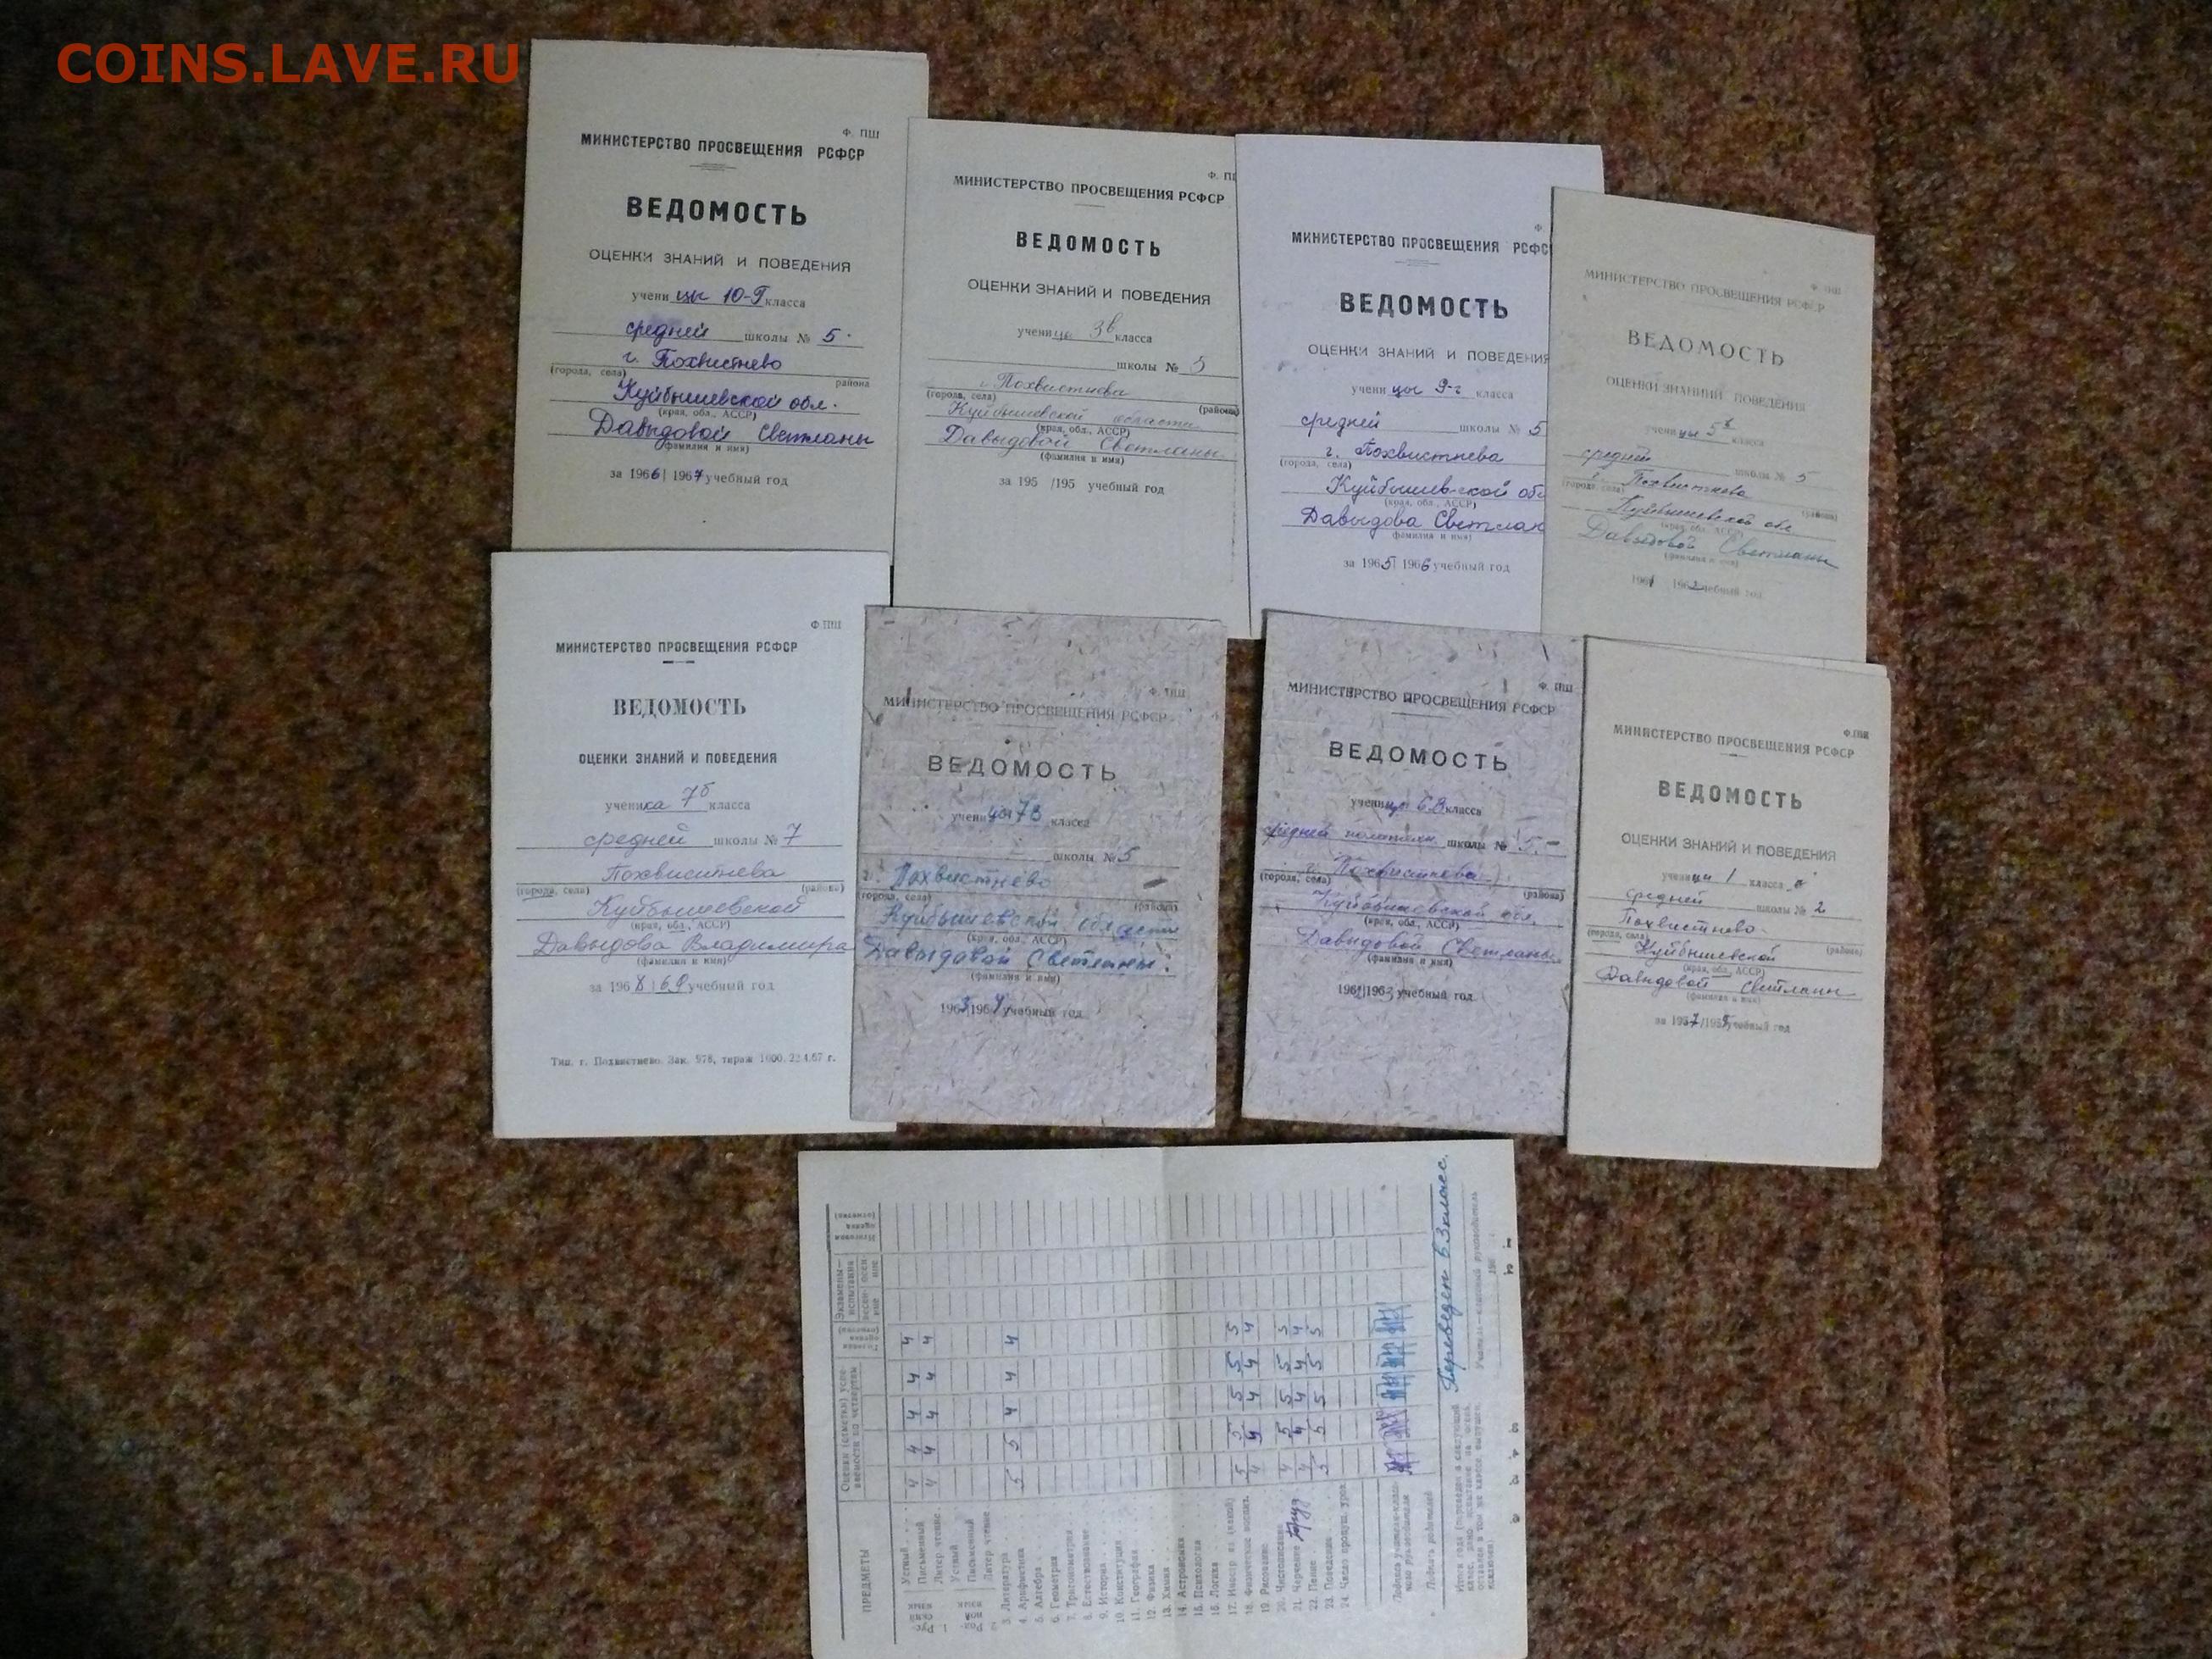 COINS.LAVE.RU
Ф. ПШ
МИНИСТЕРСТВО ПРОСВЕЩЕНИЯ РСФСР
ВЕДОМОСТЬ
ОЦЕНКИ ЗНАНИЙ И ПОВЕДЕНИЯ
учени цы 10-Г класса
средней школы № 5.
г. Похвистнево
(города, села) района
Куйбышевской обл.
(края, обл., АССР)
Давыдовой Светланы
(фамилия и имя)
за 1966/1967 учебный год
Ф. ПШ
МИНИСТЕРСТВО ПРОСВЕЩЕНИЯ РСФСР
ВЕДОМОСТЬ
ОЦЕНКИ ЗНАНИЙ И ПОВЕДЕНИЯ
учени цы 3в класса
школы № 5
г. Похвистнева
(города, села) (района)
Куйбышевской области
(края, обл., АССР)
Давыдовой Светланы
(фамилия и имя)
за 195 /195 учебный год
Ф
МИНИСТЕРСТВО ПРОСВЕЩЕНИЯ РСФС
ВЕДОМОСТЬ
ОЦЕНКИ ЗНАНИЙ И ПОВЕДЕНИЯ
учени цы 9-г класса
средней школы № 5
г. Похвистнева
(города, села)
Куйбышевской об
(края, обл., АССР)
Давыдова Светлан
(фамилия и имя)
за 1965/1966 учебный год
Ф. ПШ
МИНИСТЕРСТВО ПРОСВЕЩЕНИЯ РСФСР
ВЕДОМОСТЬ
ОЦЕНКИ ЗНАНИЙ И ПОВЕДЕНИЯ
учени цы 5в класса
средней школы № 5
г. Похвистнева
(города, села) (района)
Куйбышевской обл.
(края, обл., АССР)
Давыдовой Светланы
(фамилия и имя)
1961 1962 учебный год
Ф.ПШ
МИНИСТЕРСТВО ПРОСВЕЩЕНИЯ РСФСР
ВЕДОМОСТЬ
ОЦЕНКИ ЗНАНИЙ И ПОВЕДЕНИЯ
ученика 7б класса
средней школы № 7
Похвистнева
(города, села) (района)
Куйбышевской
(края, обл., АССР)
Давыдова Владимира
(фамилия и имя)
за 1968/69 учебный год
Тип. г. Похвистнево. Зак. 978, тираж 1000.
Ф. ПШ
МИНИСТЕРСТВО ПРОСВЕЩЕНИЯ РСФСР
ВЕДОМОСТЬ
учени цы 7в класса
школы № 5
г. Похвистнево
(города, села) (района)
Куйбышевской области
(края, обл., АССР)
Давыдовой Светланы.
(фамилия и имя)
1963/1964 учебный год
Ф. ПШ
МИНИСТЕРСТВО ПРОСВЕЩЕНИЯ РСФСР
ВЕДОМОСТЬ
учени цы 6в класса
средней школы № 5.
г. Похвистнева
(города, села) (района)
Куйбышевской обл.
(края, обл., АССР)
Давыдовой Светланы
(фамилия и имя)
учебный год
Ф.ПШ
МИНИСТЕРСТВО ПРОСВЕЩЕНИЯ РСФСР
ВЕДОМОСТЬ
ОЦЕНКИ ЗНАНИЙ И ПОВЕДЕНИЯ
учени цы 1 класса
средней школы № 2
Похвистнево
(города, села) (района)
Куйбышевской
(края, обл., АССР)
Давыдовой Светланы
(фамилия и имя)
за 1957/195 учебный год
ПРЕДМЕТЫ
Устный 4 4 4 4 4
Письменный 4 4 4 4 4
Литер. чтение
Устный
Письменный
Литер. чтение
3. Литература
4. Арифметика 5 5 4 4 4
5. Алгебра
6. Геометрия
7. Тригонометрия
8. Естествознание
9. История
10. Конституция
11. География
12. Физика
13. Химия
14. Астрономия
15. Психология
16. Логика
17. Иностр. яз. (какой)
18. Физическое воспит.
19. Рисование
20. Чистописание
21. Черчение Труд
22. Пение
23. Поведение
24. Число пропущ. урок.
Переведен в 3 класс.